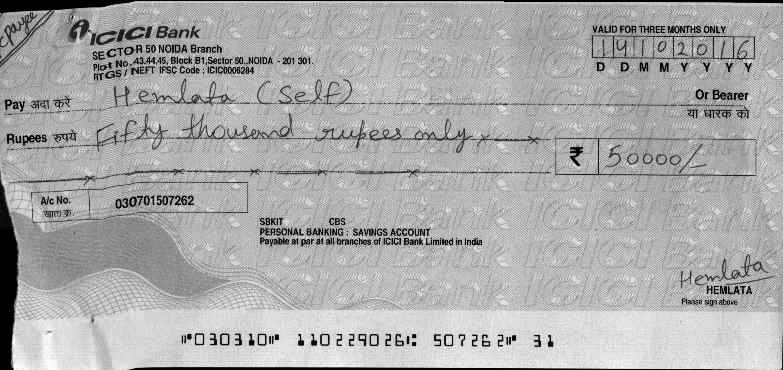 c payee
ICICI Bank
SECTOR 50 NOIDA Branch
Plot No.43,44,45, Block B1,Sector 50.,NOIDA - 201 301.
RTGS / NEFT IFSC Code : ICIC0006284
VALID FOR THREE MONTHS ONLY
14102016
D D M M Y Y Y Y
Pay अदा करें Hemlata (Self) Or Bearer
या धारक को
Rupees रुपये Fifty thousand rupees only x x
₹ 50000/-
A/c No. 030701507262
खाता क्र.
SBKIT CBS
PERSONAL BANKING : SAVINGS ACCOUNT
Payable at par at all branches of ICICI Bank Limited in India
Hemlata
HEMLATA
Please sign above
⑈030310⑈ 110229026⑆ 507262⑈ 31